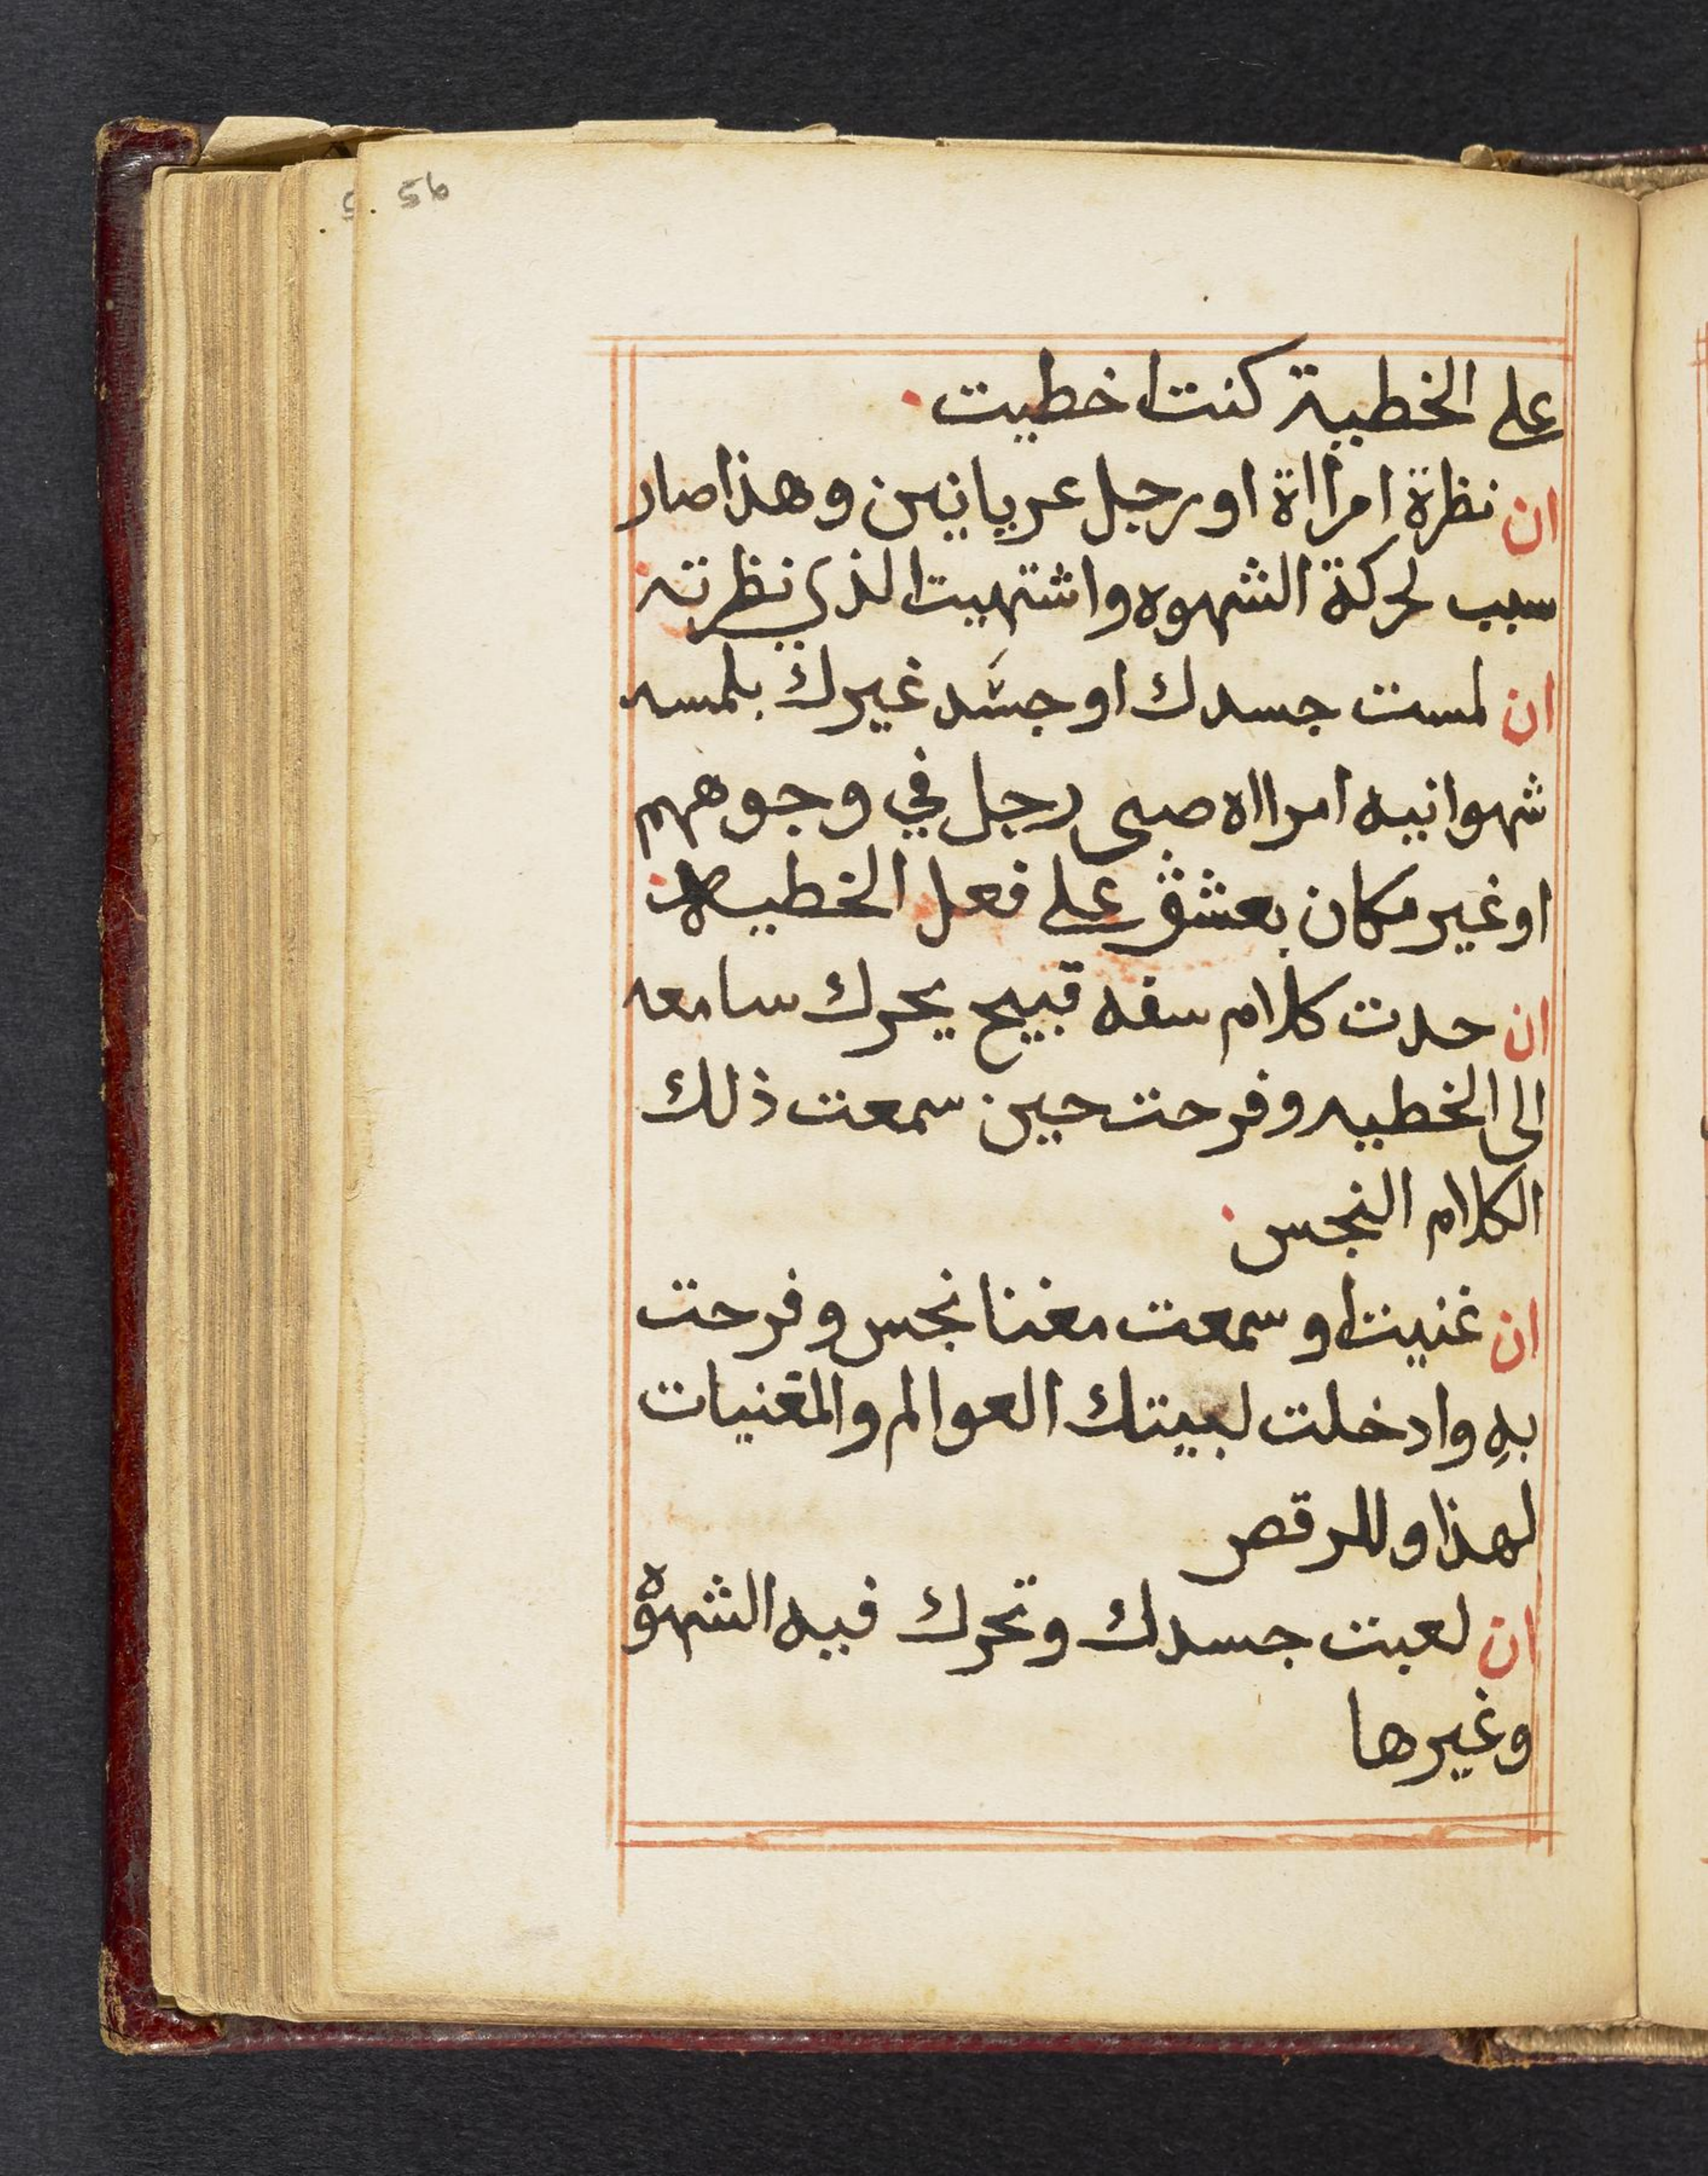 56
على الخطيية كنت اخطيت
ان نظرة امرااة او رجل عريانين وهذا صار
سبب لحركة الشهوه واشتهيت الذي نظرته
ان لمست جسدك او جسد غيرك بلمسه
شهوانيه امرااه صبى رجل في وجوههم
او غير مكان بعشق على فعل الخطيه
ان حدت كلام سفه قبيح يحرك سامعه
الى الخطيه وفرحت حين سمعت ذلك
الكلام النجس
ان غنيت او سمعت مغنا نجس وفرحت
به وادخلت لبيتك العوالم والمغنيات
لهذا وللرقص
ان لعبت جسدك وتحرك فيه الشهوة
وغيرها